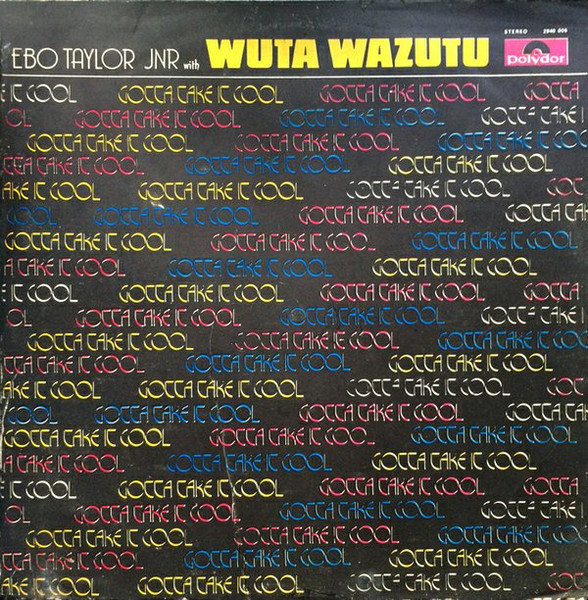 STEREO 2940 005
EBO TAYLOR JNR with WUTA WAZUTU
polydor
E IT COOL GOTTA TAKE IT COOL GOTTA TAKE IT COOL GOTTA
OL GOTTA TAKE IT COOL GOTTA TAKE IT COOL GOTTA TAKE I
GOTTA TAKE IT COOL GOTTA TAKE IT COOL GOTTA TAKE IT
TTA TAKE IT COOL GOTTA TAKE IT COOL GOTTA TAKE IT COOL
AKE IT COOL GOTTA TAKE IT COOL GOTTA TAKE IT COOL GOT
COOL GOTTA TAKE IT COOL GOTTA TAKE IT COOL GOTTA TAK
GOTTA TAKE IT COOL GOTTA TAKE IT COOL GOTTA TAKE IT COOL
A TAKE IT COOL GOTTA TAKE IT COOL GOTTA TAKE IT COOL
E IT COOL GOTTA TAKE IT COOL GOTTA TAKE IT COOL GOTTA
OL GOTTA TAKE IT COOL GOTTA TAKE IT COOL GOTTA TAKE I
GOTTA TAKE IT COOL GOTTA TAKE IT COOL GOTTA TAKE IT
TTA TAKE IT COOL GOTTA TAKE IT COOL GOTTA TAKE IT COOL
AKE IT COOL GOTTA TAKE IT COOL GOTTA TAKE IT COOL GOT
COOL GOTTA TAKE IT COOL GOTTA TAKE IT COOL GOTTA TAK
GOTTA TAKE IT COOL GOTTA TAKE IT COOL GOTTA TAKE IT COOL
A TAKE IT COOL GOTTA TAKE IT COOL GOTTA TAKE IT COOL
E IT COOL GOTTA TAKE IT COOL GOTTA TAKE IT COOL GOTTA
OL GOTTA TAKE IT COOL GOTTA TAKE IT COOL GOTTA TAKE I
GOTTA TAKE IT COOL GOTTA TAKE IT COOL GOTTA TAKE IT
TTA TAKE IT COOL GOTTA TAKE IT COOL GOTTA TAKE IT COOL
AKE IT COOL GOTTA TAKE IT COOL GOTTA TAKE IT COOL GOT